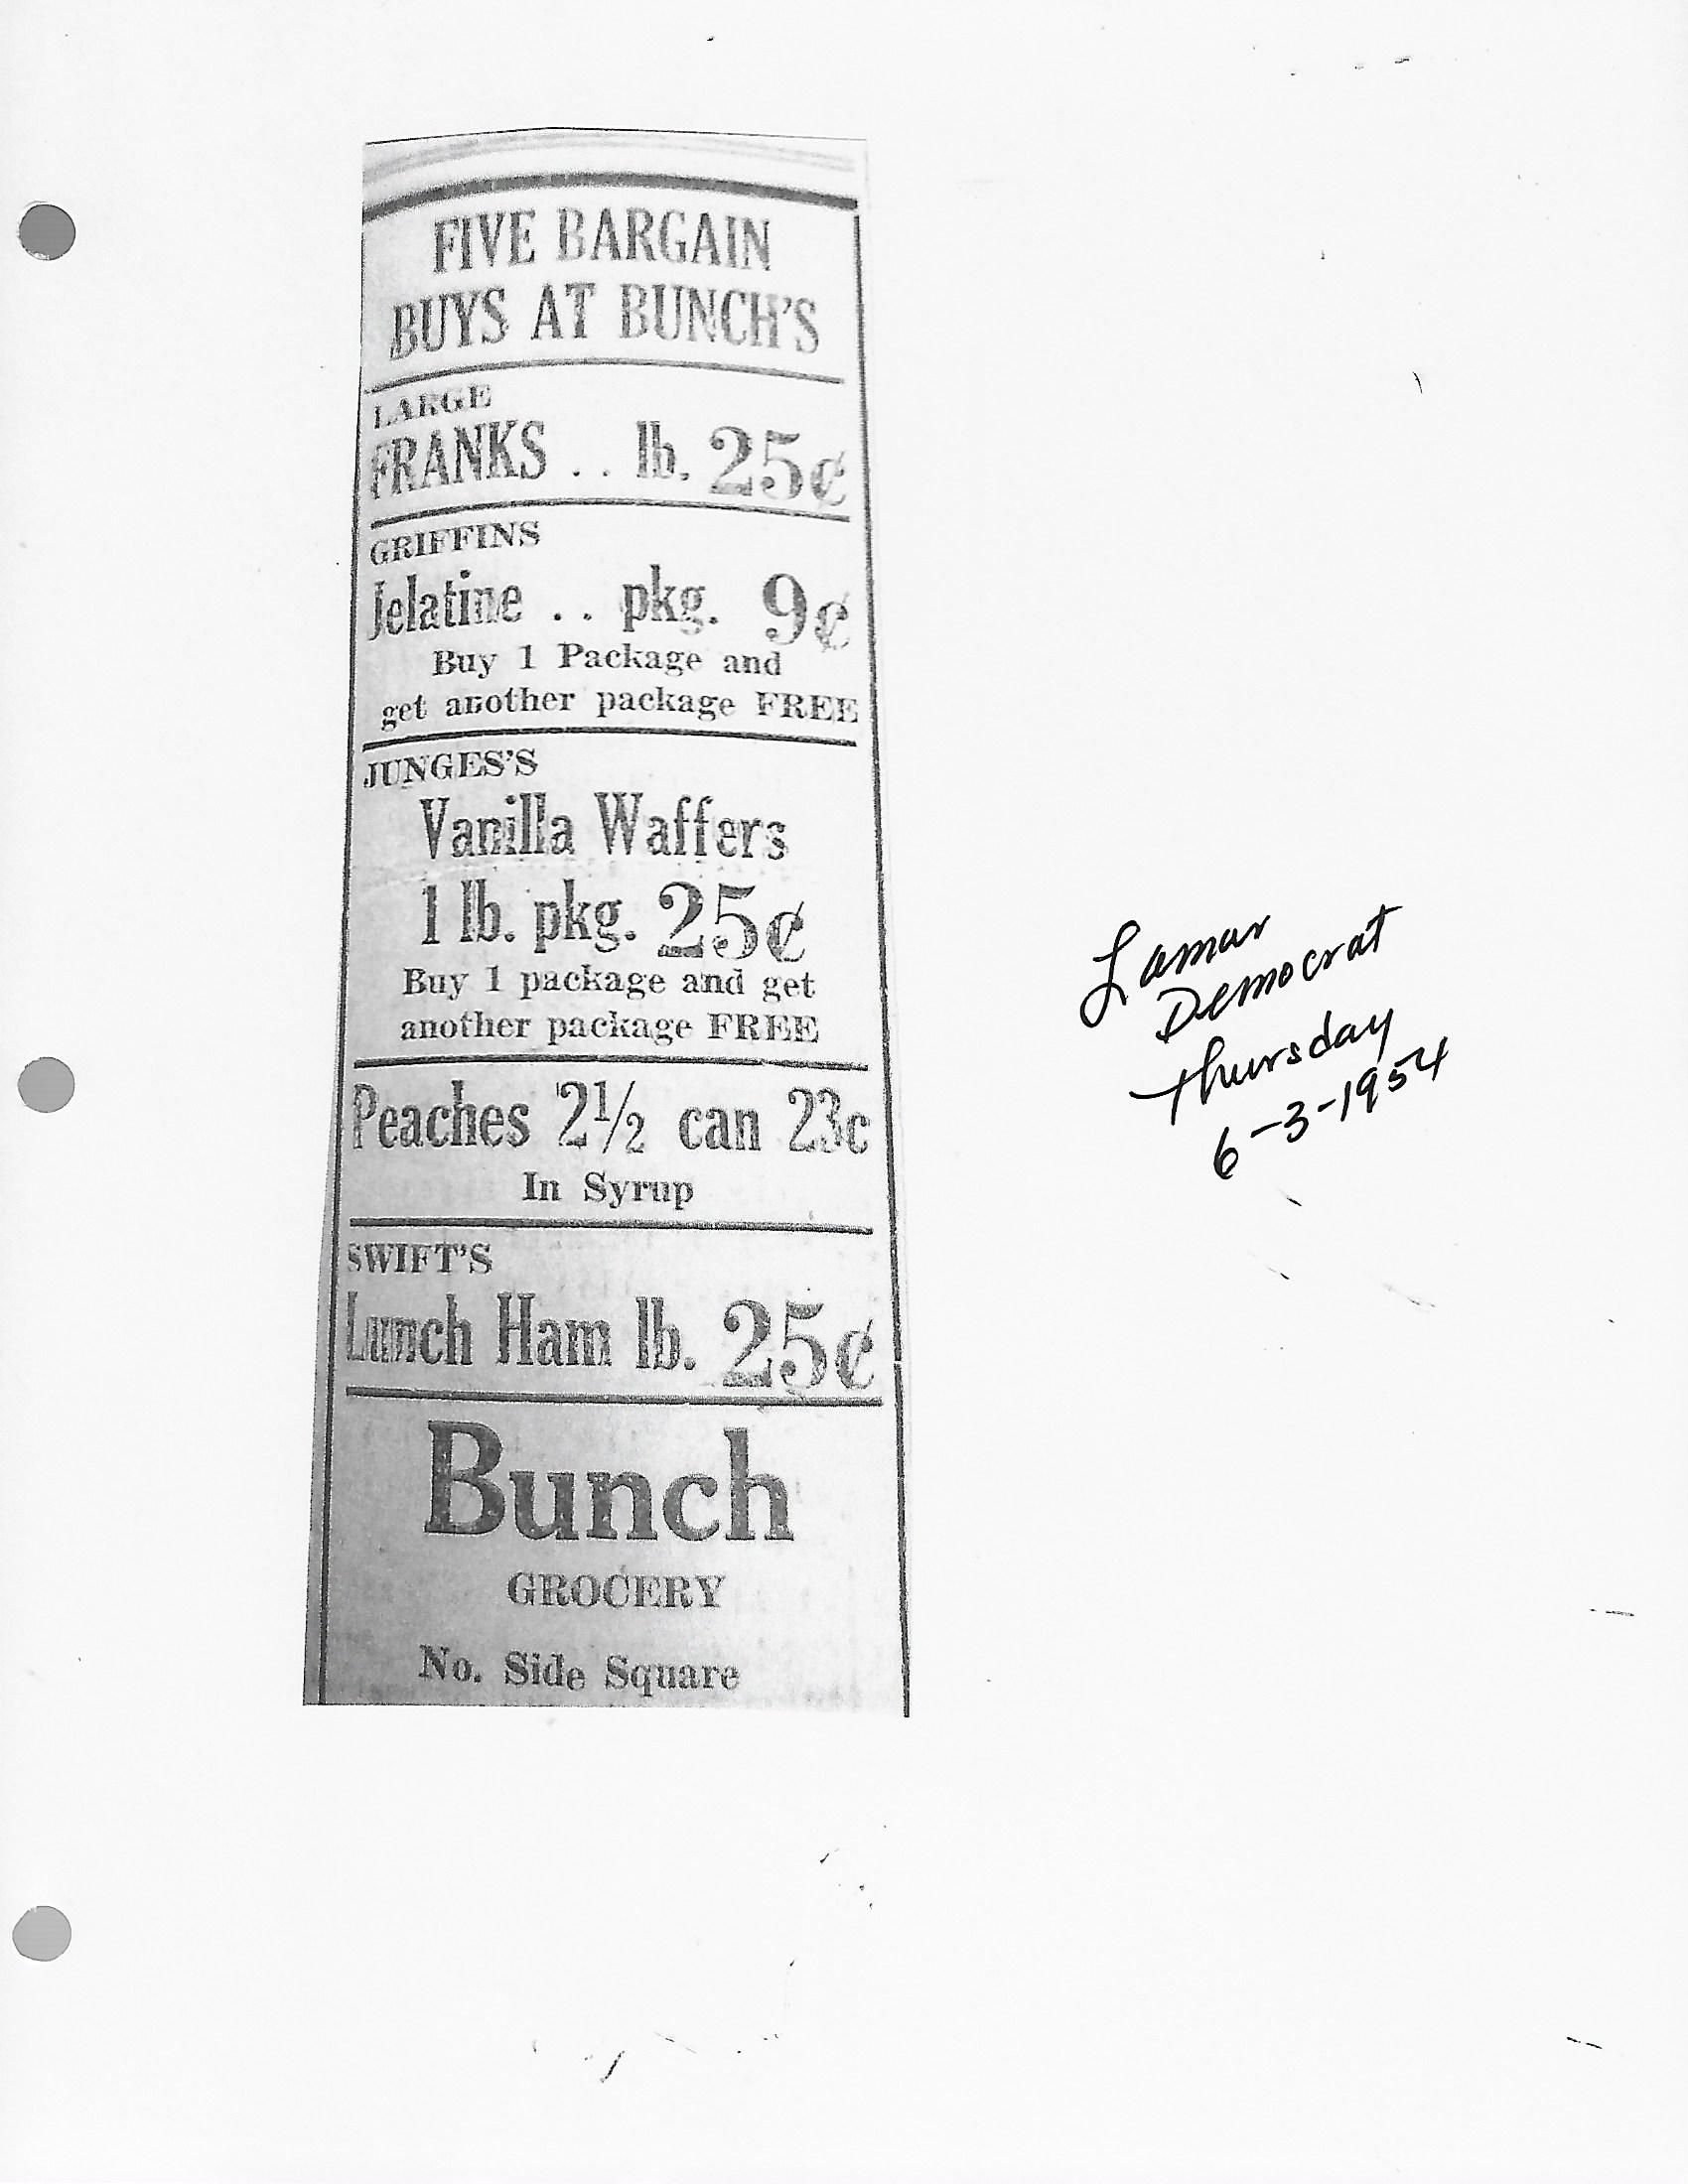 FIVE BARGAIN
BUYS AT BUNCH'S
LARGE
FRANKS . . lb. 25¢
GRIFFINS
Jelatine . . pkg. 9¢
Buy 1 Package and
get another package FREE
JUNGES'S
Vanilla Waffers
1 lb. pkg. 25¢
Buy 1 package and get
another package FREE
Peaches 2½ can 23c
In Syrup
SWIFT'S
Lunch Ham lb. 25¢
Bunch
GROCERY
No. Side Square
Lamar
Democrat
Thursday
6-3-1954